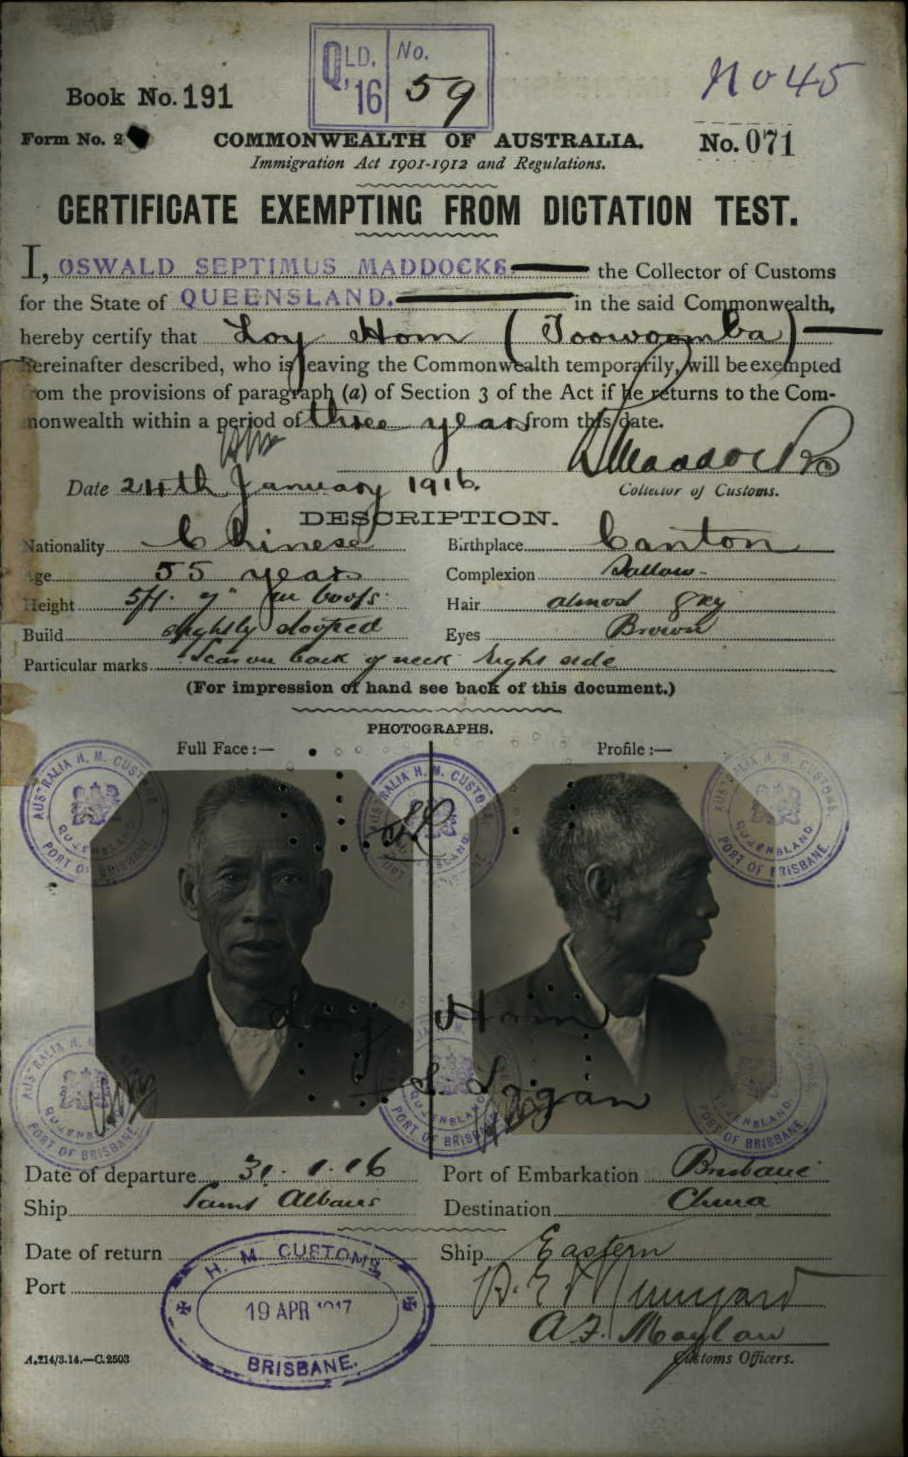 QLD. No.
'16 59
No 45
Book No. 191
Form No. 2
COMMONWEALTH OF AUSTRALIA.
No. 071
Immigration Act 1901-1912 and Regulations.
CERTIFICATE EXEMPTING FROM DICTATION TEST.
I, OSWALD SEPTIMUS MADDOCKS. the Collector of Customs
for the State of QUEENSLAND. in the said Commonwealth,
hereby certify that Loy Hom (Toowoomba)
hereinafter described, who is leaving the Commonwealth temporarily, will be exempted
from the provisions of paragraph (a) of Section 3 of the Act if he returns to the Com-
monwealth within a period of three years from this date.
Maddocks
Date 24th January 1916. Collector of Customs.
DESCRIPTION.
Nationality Chinese Birthplace Canton
Age 55 years Complexion Sallow
Height 5ft. 7" in boots Hair almost grey
Build slightly stooped Eyes Brown
Particular marks Scar on back of neck right side
(For impression of hand see back of this document.)
PHOTOGRAPHS.
Full Face :— Profile :—
AUSTRALIA H. M. CUSTOMS
QUEENSLAND
PORT OF BRISBANE
Loy Hom
Logan
Date of departure 31.1.16 Port of Embarkation Brisbane
Ship Saint Albans Destination China
Date of return Ship Eastern
Port
H. M. CUSTOMS
19 APR 1917
BRISBANE.
A.214/3.14.—C.2503
Customs Officers.